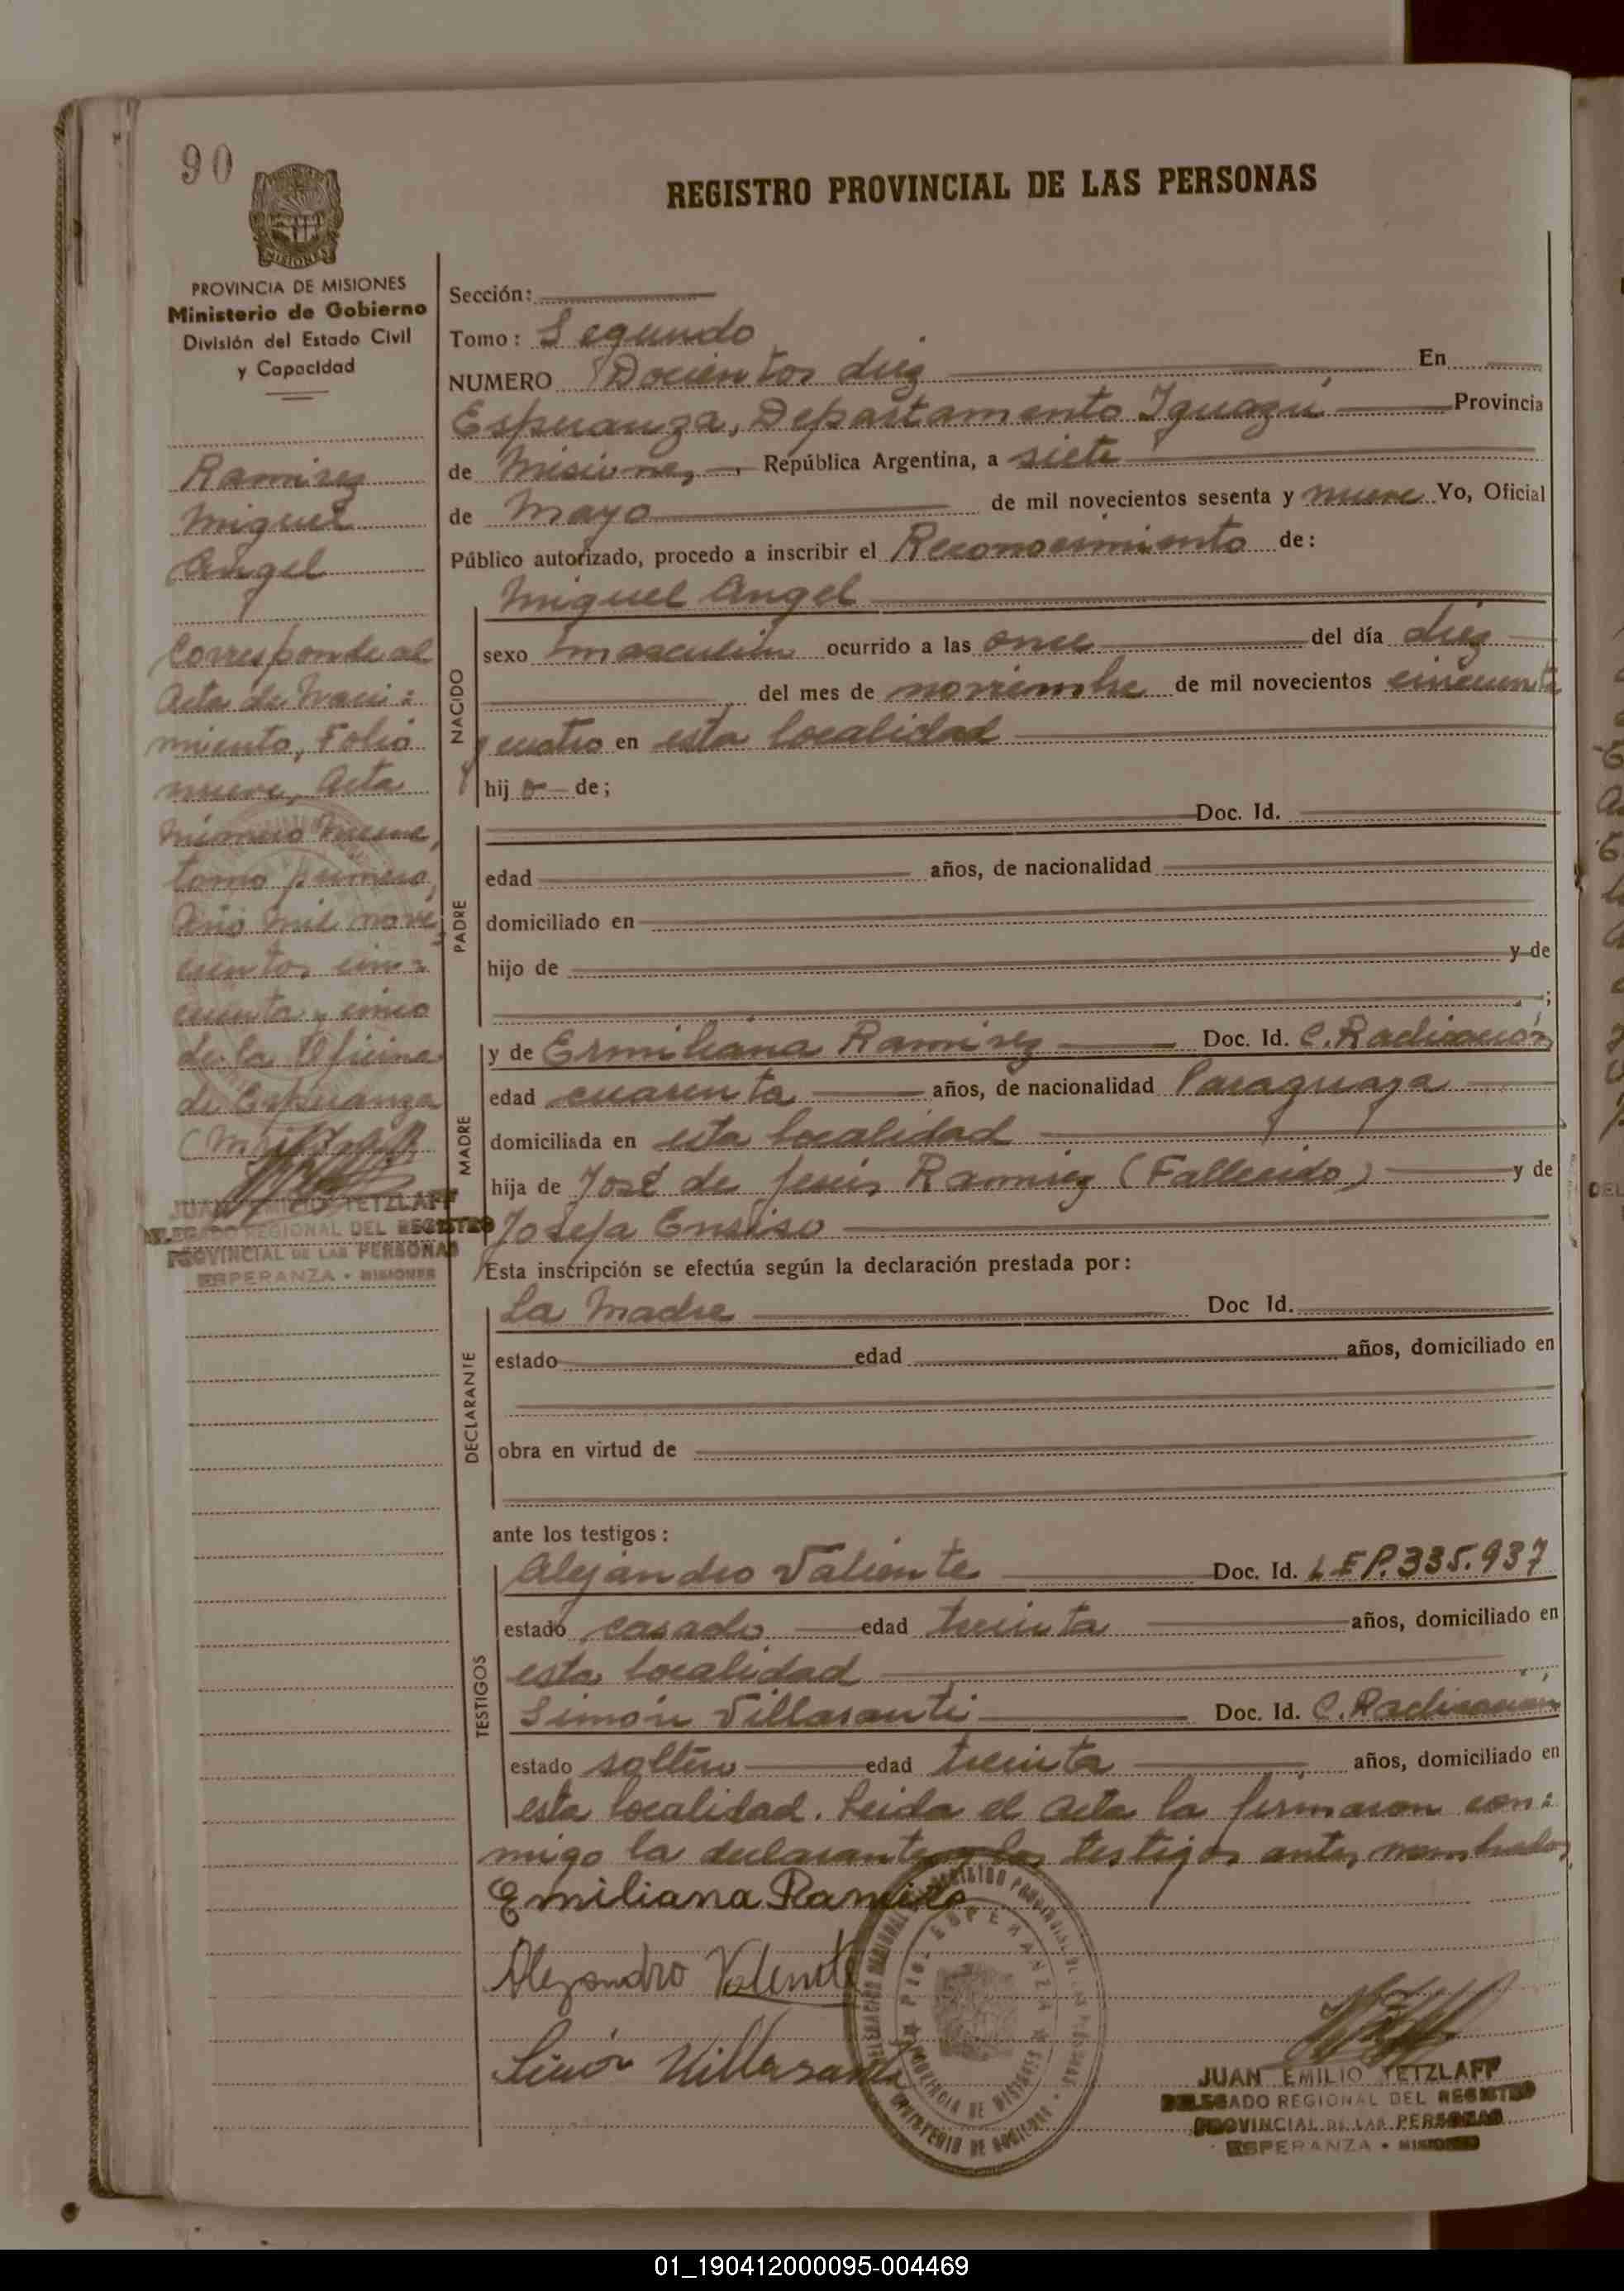 90
REGISTRO PROVINCIAL DE LAS PERSONAS
MISIONES
PROVINCIA DE MISIONES
Ministerio de Gobierno
División del Estado Civil
y Capacidad
Ramirez
Miguel
Angel
Corresponde al
Acta de Naci=
miento, Folio
nueve, Acta
número nueve,
tomo primero,
Año mil nove=
cientos cin=
cuenta y cinco
de la Oficina
de Esperanza
JUAN EMILIO TETZLAFF
DELEGADO REGIONAL DEL REGISTRO
PROVINCIAL DE LAS PERSONAS
ESPERANZA • MISIONES
Sección:
Tomo: Segundo
NUMERO Docientos diez En
Esperanza, Departamento Iguazú Provincia
de Misiones, República Argentina, a siete
de Mayo de mil novecientos sesenta y nueve Yo, Oficial
Público autorizado, procedo a inscribir el Reconocimiento de:
NACIDO
Miguel Angel
sexo masculino ocurrido a las once del día diez
del mes de noviembre de mil novecientos cincuenta
y cuatro en esta localidad
hij o de;
PADRE
Doc. Id.
edad años, de nacionalidad
domiciliado en
hijo de y de
;
MADRE
y de Ermiliana Ramirez Doc. Id. C. Radicación
edad cuarenta años, de nacionalidad Paraguaya
domiciliada en esta localidad
hija de José de Jesús Ramirez (Fallecido) y de
Josefa Ensiso
Esta inscripción se efectúa según la declaración prestada por:
DECLARANTE
La Madre Doc Id.
estado edad años, domiciliado en
obra en virtud de
ante los testigos:
TESTIGOS
Alejandro Valiente Doc. Id. L.E P.335.937
estado casado edad treinta años, domiciliado en
esta localidad
Simón Villasanti Doc. Id. C. Radicación
estado soltero edad treinta años, domiciliado en
esta localidad. Leida el Acta la firmaron con=
migo la declarante y los testigos antes nombrados,
Emiliana Ramires
Alejandro Valiente
Simón Villasanti
ESPERANZA
PROVINCIA DE MISIONES
MINISTERIO DE GOBIERNO
JUAN EMILIO TETZLAFF
DELEGADO REGIONAL DEL REGISTRO
PROVINCIAL DE LAS PERSONAS
ESPERANZA • MISIONES
01_190412000095-004469